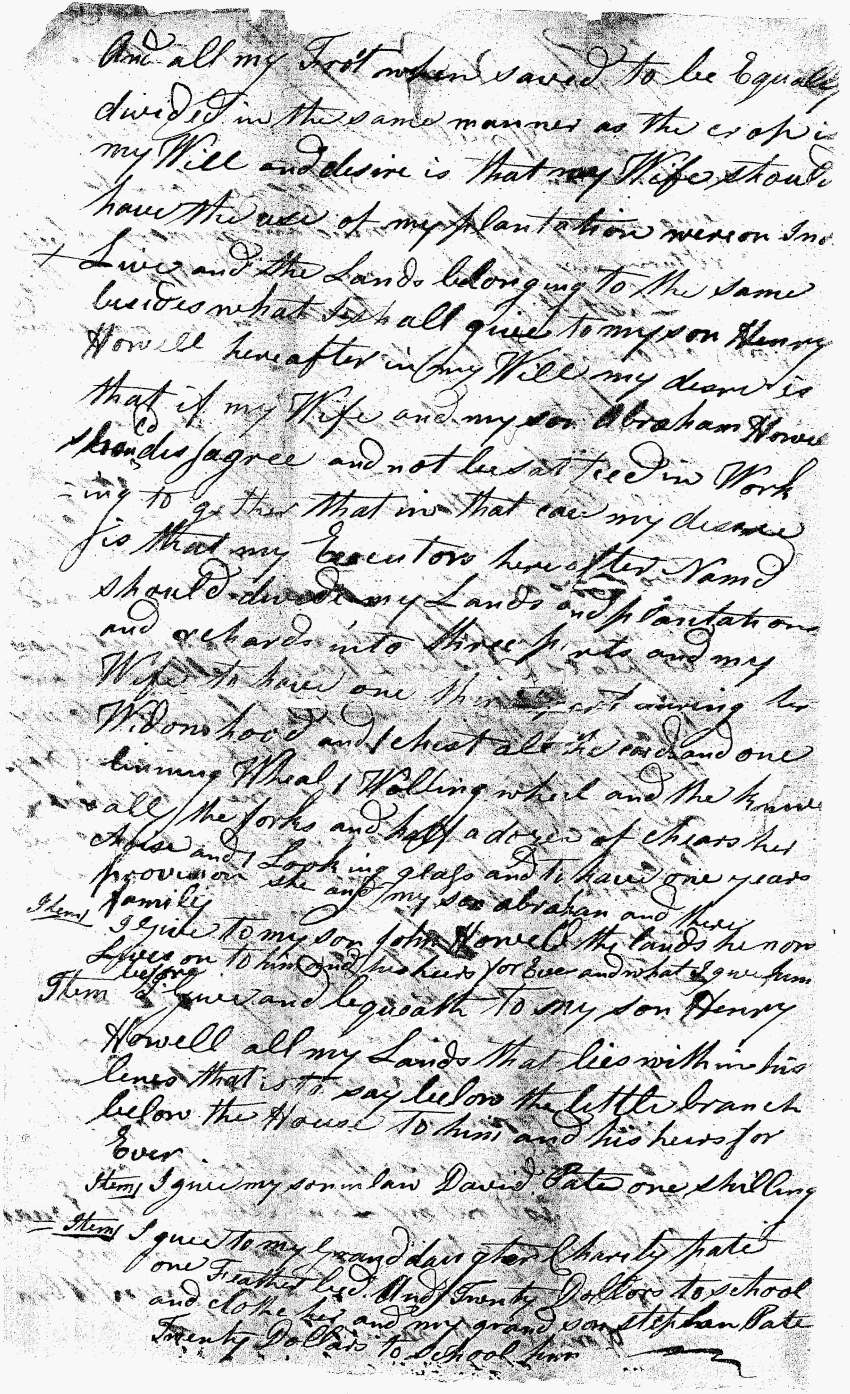 And all my Fro't when saved to be Equally
divided in the same manner as the crop is
my Will and desire is that my Wife should
have the use of my plantation wereon I no
Live and the Lands belonging to the same
besides what I shall give to my son Henry
Howell hereafter in my Will my desire is
that if my Wife and my son Abraham Howell
should dissagree and not be sattteed in Work
ing to gether that in that case my desire
is that my Executors hereafter Namd
should divide my Lands and plantations
and orchards into three parts and my
Wife to have one third part during her
Widowhood and 1 chest all the and one
linning Wheal 1 Wolling wheel and the knives
all the forks and half a dozen of chears her
choise and 1 Looking glass and to have one years
provision she and my son abraham and there
family
Item I give to my son John Howell the lands he now
Lives on to him and his heirs for Ever and what I give him
before
Item I give and bequeath to my son Henry
Howell all my Lands that lies within his
lines that is to say below the little branch
below the House to him and his heirs for
Ever
Item I give my son in law David Pate one shilling
Item I give to my Grand daughter Charity pate
one Feather bed And Twenty Dollors to school
and clothe her and my grand son stephen Pate
Twenty Dollars to school him